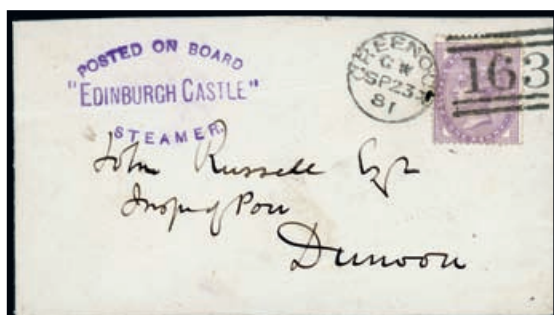 POSTED ON BOARD
"EDINBURGH CASTLE"
STEAMER
GREENOCK
G W
SP 23
81
163
John Russell Esqr
Insp of Poor
Dunoon